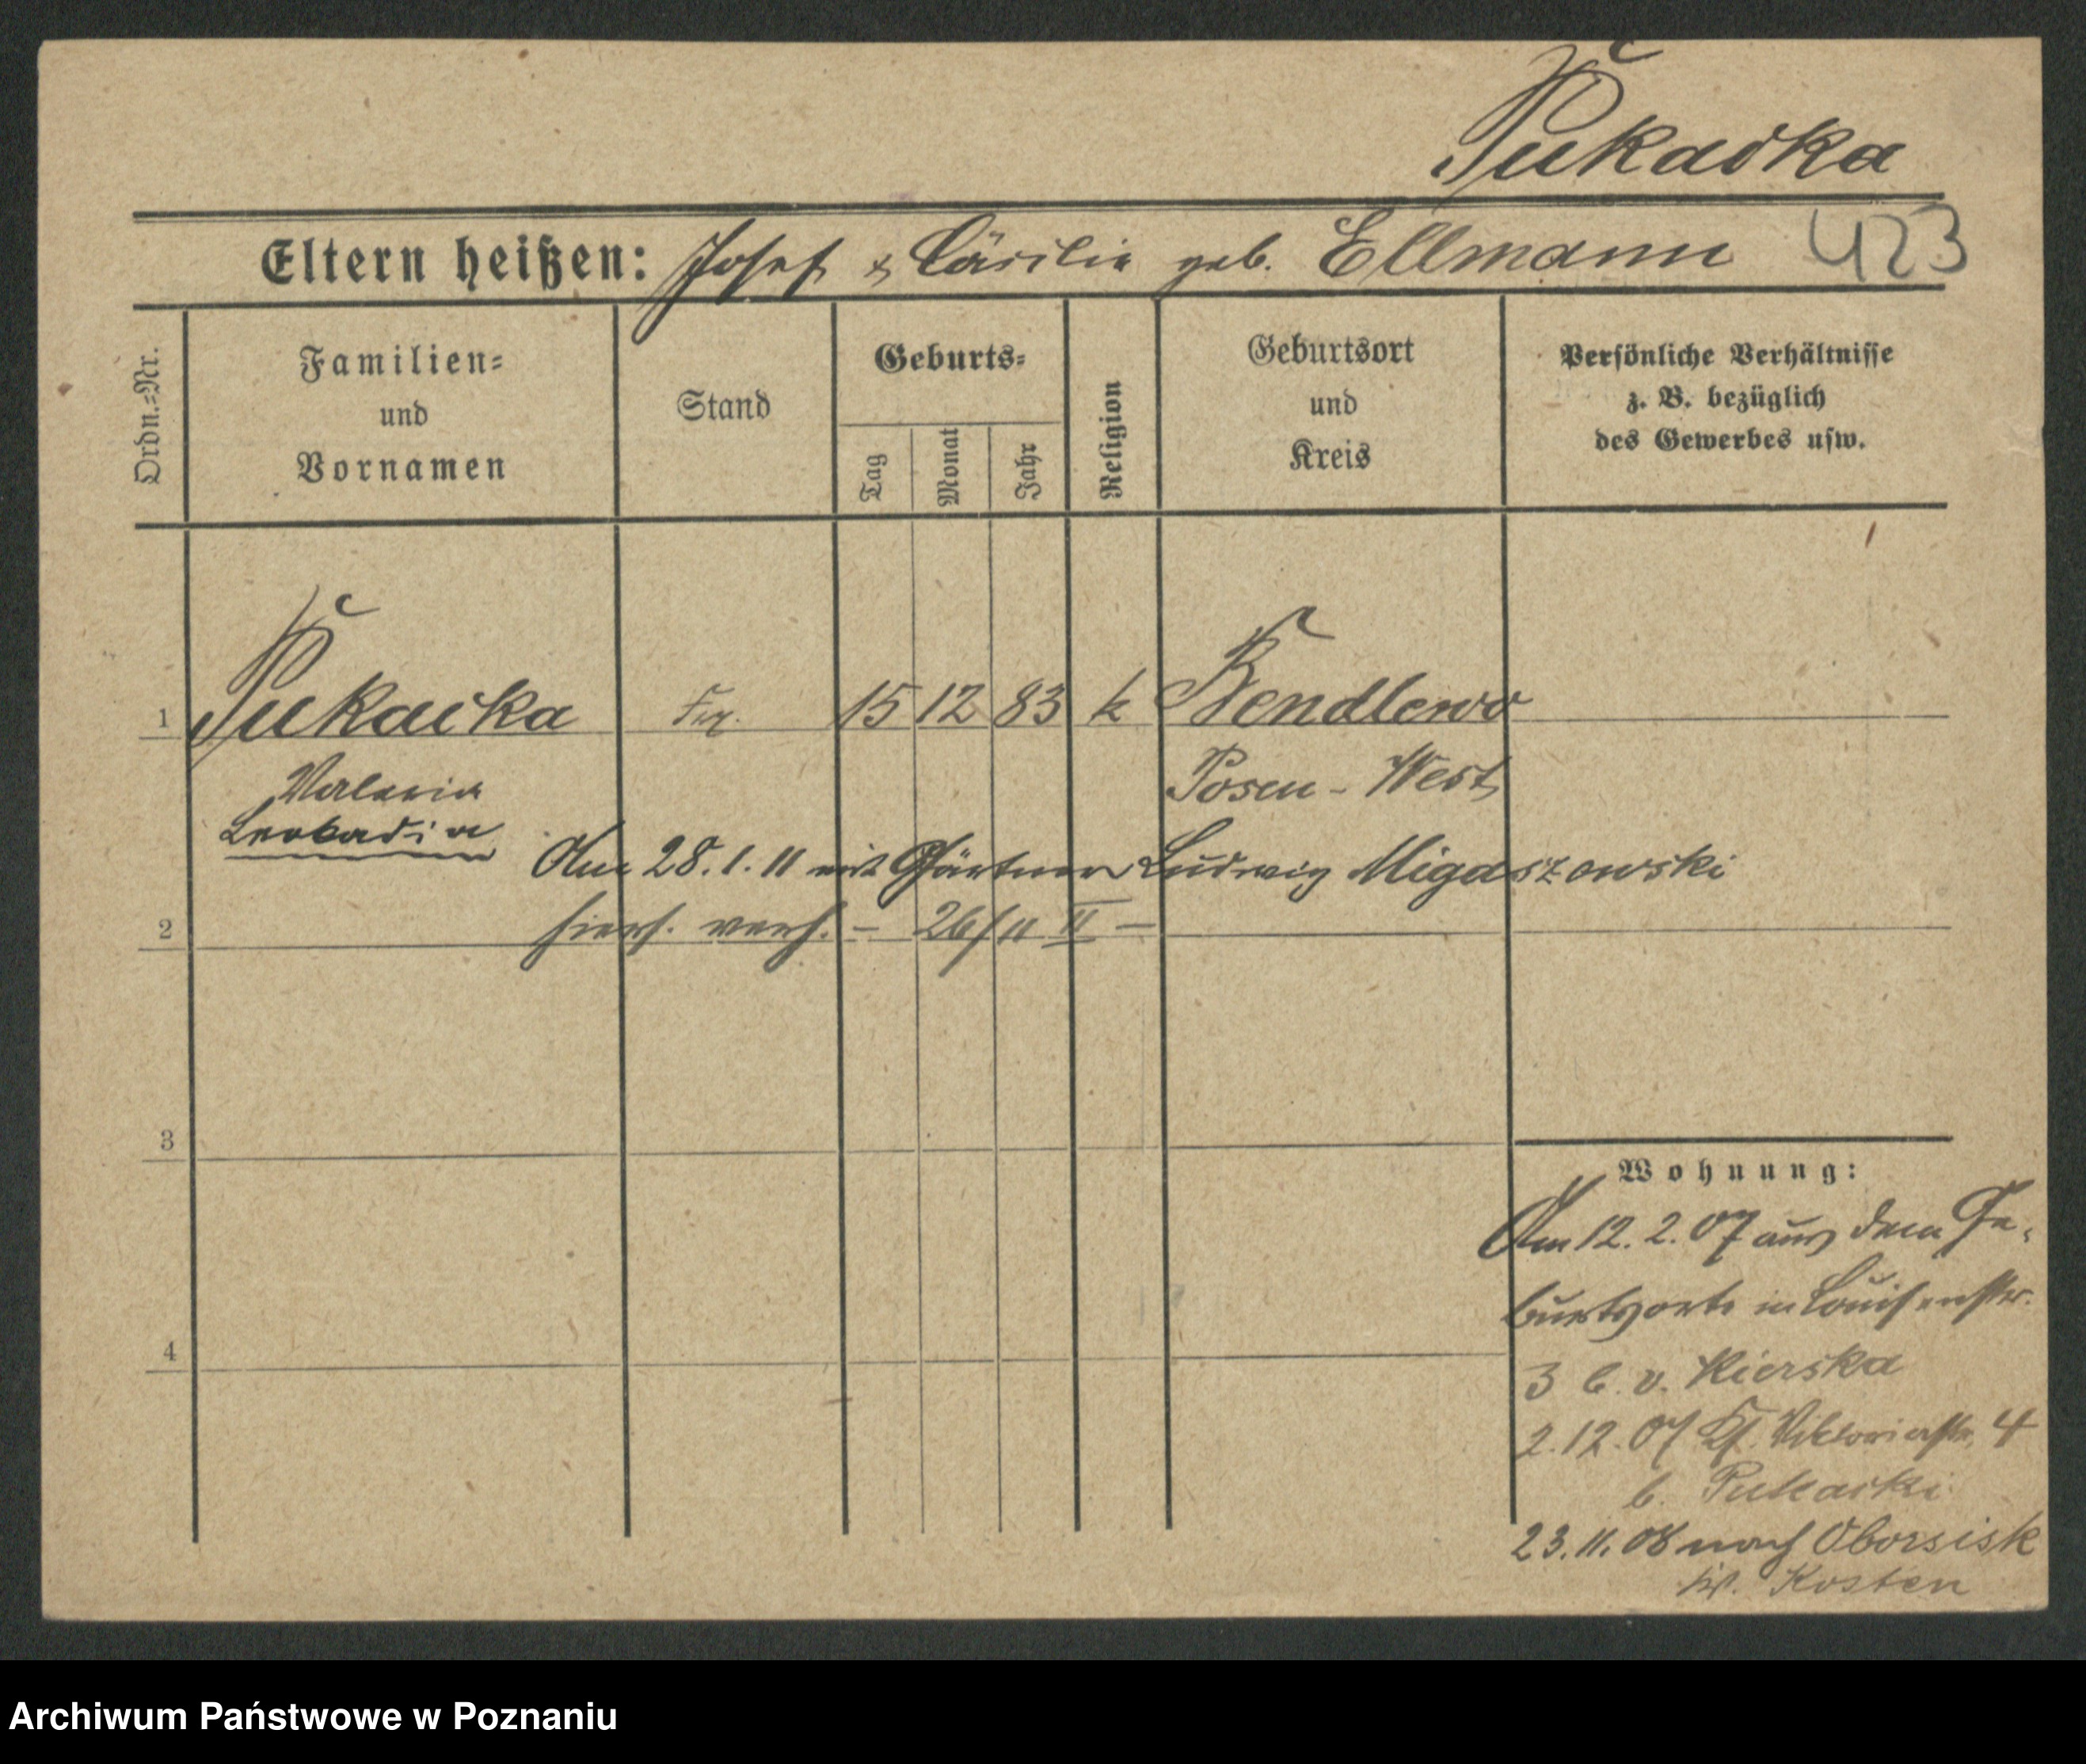 Pukacka
Eltern heißen: Josef & Cäcilie geb. Ellmann 423
Ordn.=Nr.
Familien=
und
Vornamen
Stand
Geburts=
Tag
Monat
Jahr
Religion
Geburtsort
und
Kreis
Persönliche Verhältnisse
z. B. bezüglich
des Gewerbes usw.
1 Pukacka 15 12 83 k Wendlewo
Valeria Posen - West
Leokadia
Am 28.1.11 mit Gärtner Ludwig Migaszowski
2 hiers. verh. – 26/11 II –
3
Wohnung:
Am 12.2.07 aus dem Ge-
burtsorte in Louisenstr.
4
3 b. v. Kierska
2.12.07 Viktoriastr. 4
b. Pukacki
23.11.08 nach Oborsisk
Kr. Kosten
Archiwum Państwowe w Poznaniu